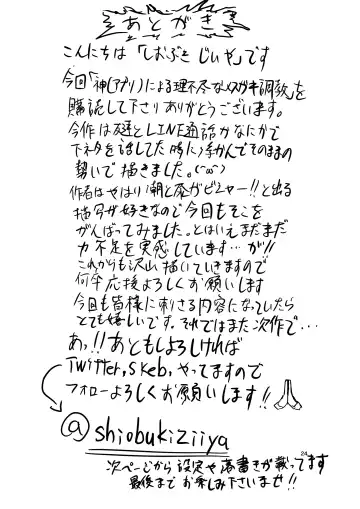 あとがき
こんにちは「しおぶきじいや」です
今回「神(アプリ)による理不尽なメスガキ調教」を
購読して下さりありがとうございます。
今作は友達とLINE通話かなにかで
下ネタを話してた時に浮かんでそのままの
勢いで描きました。(^ω^)
作者はやはり潮と尿がビシャー!!と出る
描写が好きなので今回もそこを
がんばってみました。とはいえまだまだ
力不足を実感しています…が!!
これからも沢山描いていきますので
何卒応援よろしくお願いします
今回も皆様に刺さる内容になっていたら
とても嬉しいです。それではまた次作で…
あっ!!あともしよろしければ
Twitter,Skeb,やってますので
フォローよろしくお願いします!!
@shiobukiziiya
次ページから設定や落書きが載ってます
最後までお楽しみ下さいませ!!